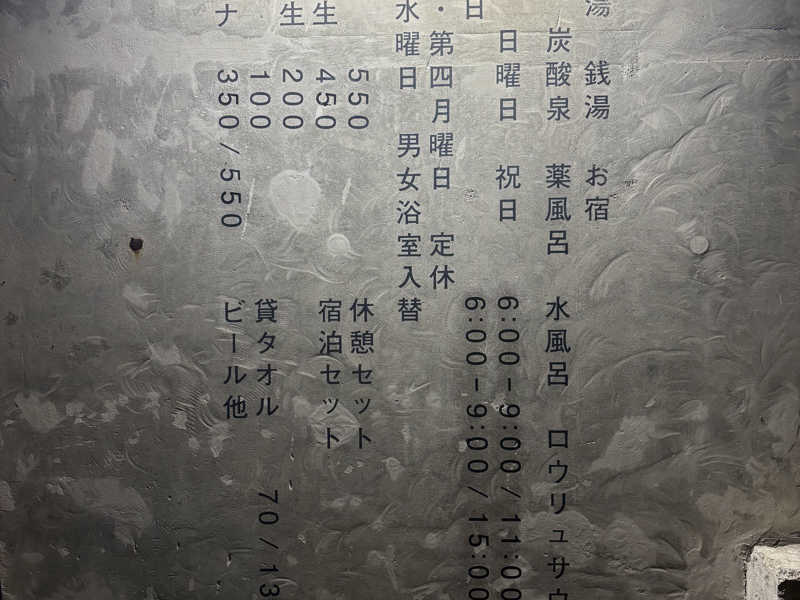 湯 銭湯 お宿
炭酸泉 薬風呂 水風呂 ロウリュサウ
日曜日 祝日 6:00-9:00/11:00
日 6:00-9:00/15:00
・第四月曜日 定休
水曜日 男女浴室入替
550 休憩セット
生 450 宿泊セット
生 200
100 貸タオル 70/13
ナ 350/550 ビール他